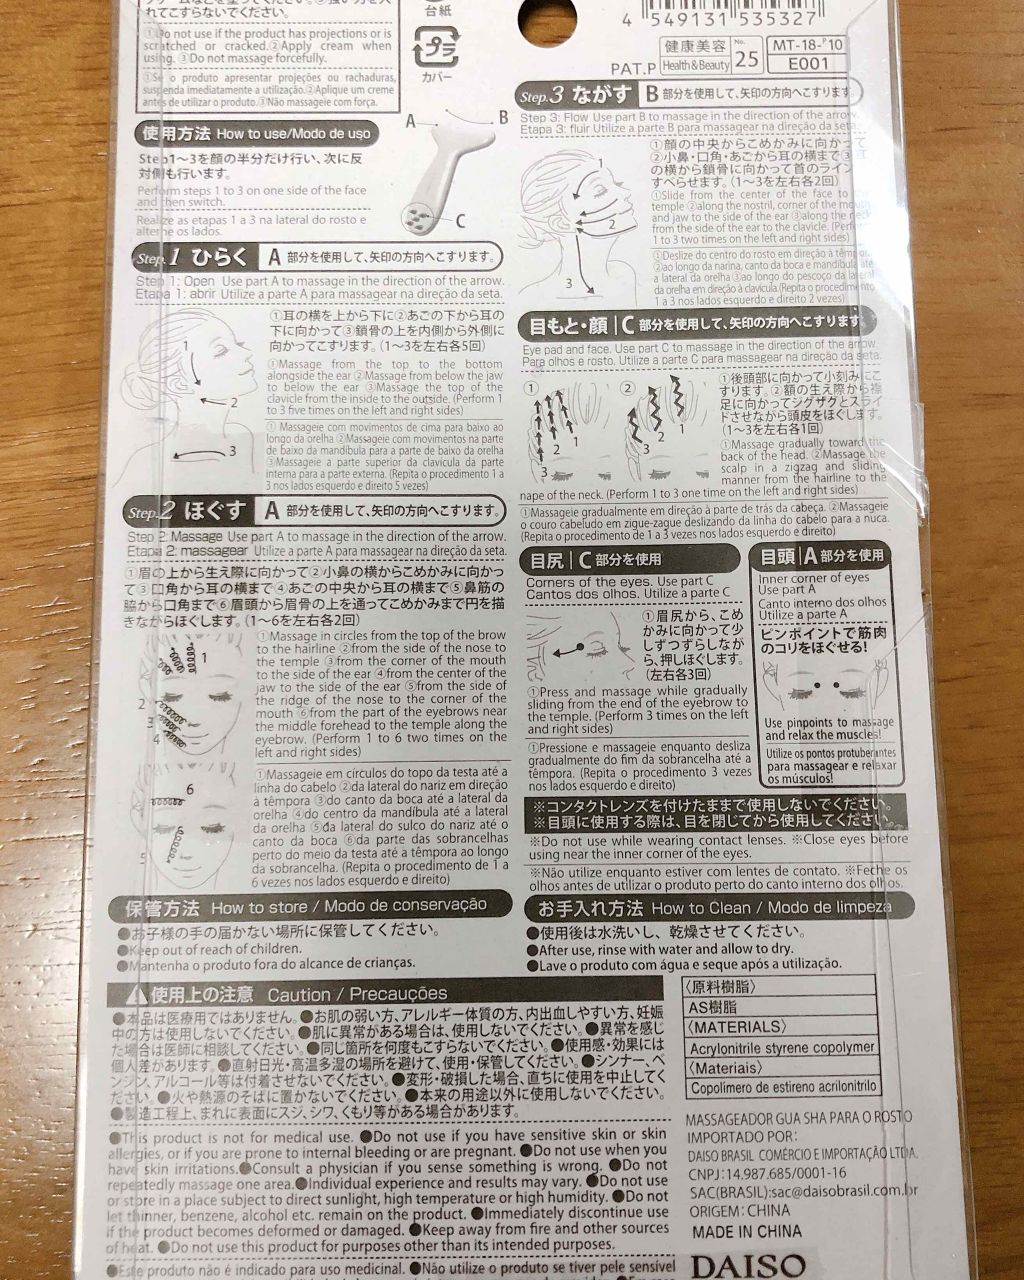 れてこすらないでください。
①Do not use if the product has projections or is
scratched or cracked.②Apply cream when
using. ③Do not massage forcefully.
①Se o produto apresentar projeções ou rachaduras,
suspenda imediatamente a utilização.②Aplique um creme
antes de utilizar o produto.③Não massageie com força.
台紙
プラ
カバー
4 549131 535327
健康美容
Health & Beauty
No.
25
MT-18-P10
E001
PAT.P
使用方法 How to use/Modo de uso
Step1〜3を顔の半分だけ行い、次に反
対側も行います。
Perform steps 1 to 3 on one side of the face
and then switch.
Realize as etapas 1 a 3 na lateral do rosto e
alterne os lados.
A
B
C
Step.1 ひらく A 部分を使用して、矢印の方向へこすります。
Step 1: Open Use part A to massage in the direction of the arrow.
Etapa 1: abrir Utilize a parte A para massagear na direção da seta.
①耳の横を上から下に②あごの下から耳の
下に向かって③鎖骨の上を内側から外側に
向かってこすります。(1〜3を左右各5回)
①Massage from the top to the bottom
alongside the ear ②Massage from below the jaw
to below the ear ③Massage the top of the
clavicle from the inside to the outside. (Perform 1
to 3 five times on the left and right sides)
①Massageie com movimentos de cima para baixo ao
longo da orelha ②Massageie com movimentos na parte
de baixo da mandíbula para a parte de baixo da orelha
③Massageie a parte superior da clavícula da parte
interna para a parte externa. (Repita o procedimento 1 a
3 nos lados esquerdo e direito 5 vezes)
1
2
3
Step.2 ほぐす A 部分を使用して、矢印の方向へこすります。
Step 2: Massage Use part A to massage in the direction of the arrow.
Etapa 2: massagear Utilize a parte A para massagear na direção da seta.
①眉の上から生え際に向かって②小鼻の横からこめかみに向かっ
て③口角から耳の横まで④あごの中央から耳の横まで⑤鼻筋の
脇から口角まで⑥眉頭から眉骨の上を通ってこめかみまで円を描
きながらほぐします。(1〜6を左右各2回)
①Massage in circles from the top of the brow
to the hairline ②from the side of the nose to
the temple ③from the corner of the mouth
to the side of the ear ④from the center of the
jaw to the side of the ear ⑤from the side of
the ridge of the nose to the corner of the
mouth ⑥from the part of the eyebrows near
the middle forehead to the temple along the
eyebrow. (Perform 1 to 6 two times on the
left and right sides)
1
2
3
4
①Massageie em círculos do topo da testa até a
linha do cabelo ②da lateral do nariz em direção
à têmpora ③do canto da boca até a lateral da
orelha ④do centro da mandíbula até a lateral
da orelha ⑤da lateral do sulco do nariz até o
canto da boca ⑥da parte das sobrancelhas
perto do meio da testa até a têmpora ao longo
da sobrancelha. (Repita o procedimento de 1 a
6 vezes nos lados esquerdo e direito)
6
5
保管方法 How to store / Modo de conservação
●お子様の手の届かない場所に保管してください。
●Keep out of reach of children.
●Mantenha o produto fora do alcance de crianças.
Step.3 ながす B 部分を使用して、矢印の方向へこすります。
Step 3: Flow Use part B to massage in the direction of the arrow.
Etapa 3: fluir Utilize a parte B para massagear na direção da seta.
①顔の中央からこめかみに向かって
②小鼻・口角・あごから耳の横まで③耳
の横から鎖骨に向かって首のライン
すべらせます。(1〜3を左右各2回)
①Slide from the center of the face to the
temple ②along the nostril, corner of the mouth
and jaw to the side of the ear ③along the neck
from the side of the ear to the clavicle. (Perform
1 to 3 two times on the left and right sides)
①Deslize do centro do rosto em direção à têmpora
②ao longo da narina, canto da boca e mandíbula até
a lateral da orelha ③ao longo do pescoço da lateral
da orelha em direção à clavícula.(Repita o procedimento
1 a 3 nos lados esquerdo e direito 2 vezes)
1
2
3
目もと・顔 C 部分を使用して、矢印の方向へこすります。
Eye pad and face. Use part C to massage in the direction of the arrow.
Para olhos e rosto. Utilize a parte C para massagear na direção da seta.
①後頭部に向かって小刻みにこ
すります。②額の生え際から襟
足に向かってジグザグとスライ
ドさせながら頭皮をほぐします。
(1〜3を左右各1回)
①Massage gradually toward the
back of the head. ②Massage the
scalp in a zigzag and sliding
manner from the hairline to the
nape of the neck. (Perform 1 to 3 one time on the left and right sides)
①Massageie gradualmente em direção à parte de trás da cabeça. ②Massageie
o couro cabeludo em zigue-zague deslizando da linha do cabelo para a nuca.
(Repita o procedimento de 1 a 3 vezes nos lados esquerdo e direito)
① 1 2 3
② 1 2 3
目尻 C 部分を使用
Corners of the eyes. Use part C
Cantos dos olhos. Utilize a parte C
①眉尻から、こめ
かみに向かって少
しずつずらしなが
ら、押しほぐします。
(左右各3回)
①Press and massage while gradually
sliding from the end of the eyebrow to
the temple. (Perform 3 times on the left
and right sides)
①Pressione e massageie enquanto desliza
gradualmente do fim da sobrancelha até a
têmpora. (Repita o procedimento 3 vezes
nos lados esquerdo e direito)
目頭 A 部分を使用
Inner corner of eyes
Use part A
Canto interno dos olhos
Utilize a parte A
ピンポイントで筋肉
のコリをほぐせる!
Use pinpoints to massage
and relax the muscles!
Utilize os pontos protuberantes
para massagear e relaxar
os músculos!
※コンタクトレンズを付けたままで使用しないでください。
※目頭に使用する際は、目を閉じてから使用してください。
※Do not use while wearing contact lenses. ※Close eyes before
using near the inner corner of the eyes.
※Não utilize enquanto estiver com lentes de contato. ※Feche os
olhos antes de utilizar o produto perto do canto interno dos olhos.
お手入れ方法 How to Clean / Modo de limpeza
●使用後は水洗いし、乾燥させてください。
●After use, rinse with water and allow to dry.
●Lave o produto com água e seque após a utilização.
使用上の注意 Caution / Precauções
●本品は医療用ではありません。●お肌の弱い方、アレルギー体質の方、内出血しやすい方、妊娠
中の方は使用しないでください。●肌に異常がある場合は、使用しないでください。●異常を感じ
た場合は医師に相談してください。●同じ箇所を何度もこすらないでください。●使用感・効果には
個人差があります。●直射日光・高温多湿の場所を避けて、使用・保管してください。●シンナー、ベ
ンジン、アルコール等は付着させないでください。●変形・破損した場合、直ちに使用を中止してく
ださい。●火や熱源のそばに置かないでください。●本来の用途以外に使用しないでください。
●製造工程上、まれに表面にスジ、シワ、くもり等がある場合があります。
●This product is not for medical use. ●Do not use if you have sensitive skin or skin
allergies, or if you are prone to internal bleeding or are pregnant. ●Do not use when you
have skin irritations.●Consult a physician if you sense something is wrong. ●Do not
repeatedly massage one area.●Individual experience and results may vary. ●Do not use
or store in a place subject to direct sunlight, high temperature or high humidity. ●Do not
let thinner, benzene, alcohol etc. remain on the product. ●Immediately discontinue use
if the product becomes deformed or damaged. ●Keep away from fire and other sources
of heat. ●Do not use this product for purposes other than its intended purposes.
●Este produto não é indicado para uso medicinal. ●Não utilize o produto se tiver pele sensível
〈原料樹脂〉
AS樹脂
〈MATERIALS〉
Acrylonitrile styrene copolymer
〈Materiais〉
Copolímero de estireno acrilonitrilo
MASSAGEADOR GUA SHA PARA O ROSTO
IMPORTADO POR:
DAISO BRASIL COMÉRCIO E IMPORTAÇÃO LTDA.
CNPJ:14.987.685/0001-16
SAC(BRASIL):sac@daisobrasil.com.br
ORIGEM: CHINA
MADE IN CHINA
DAISO